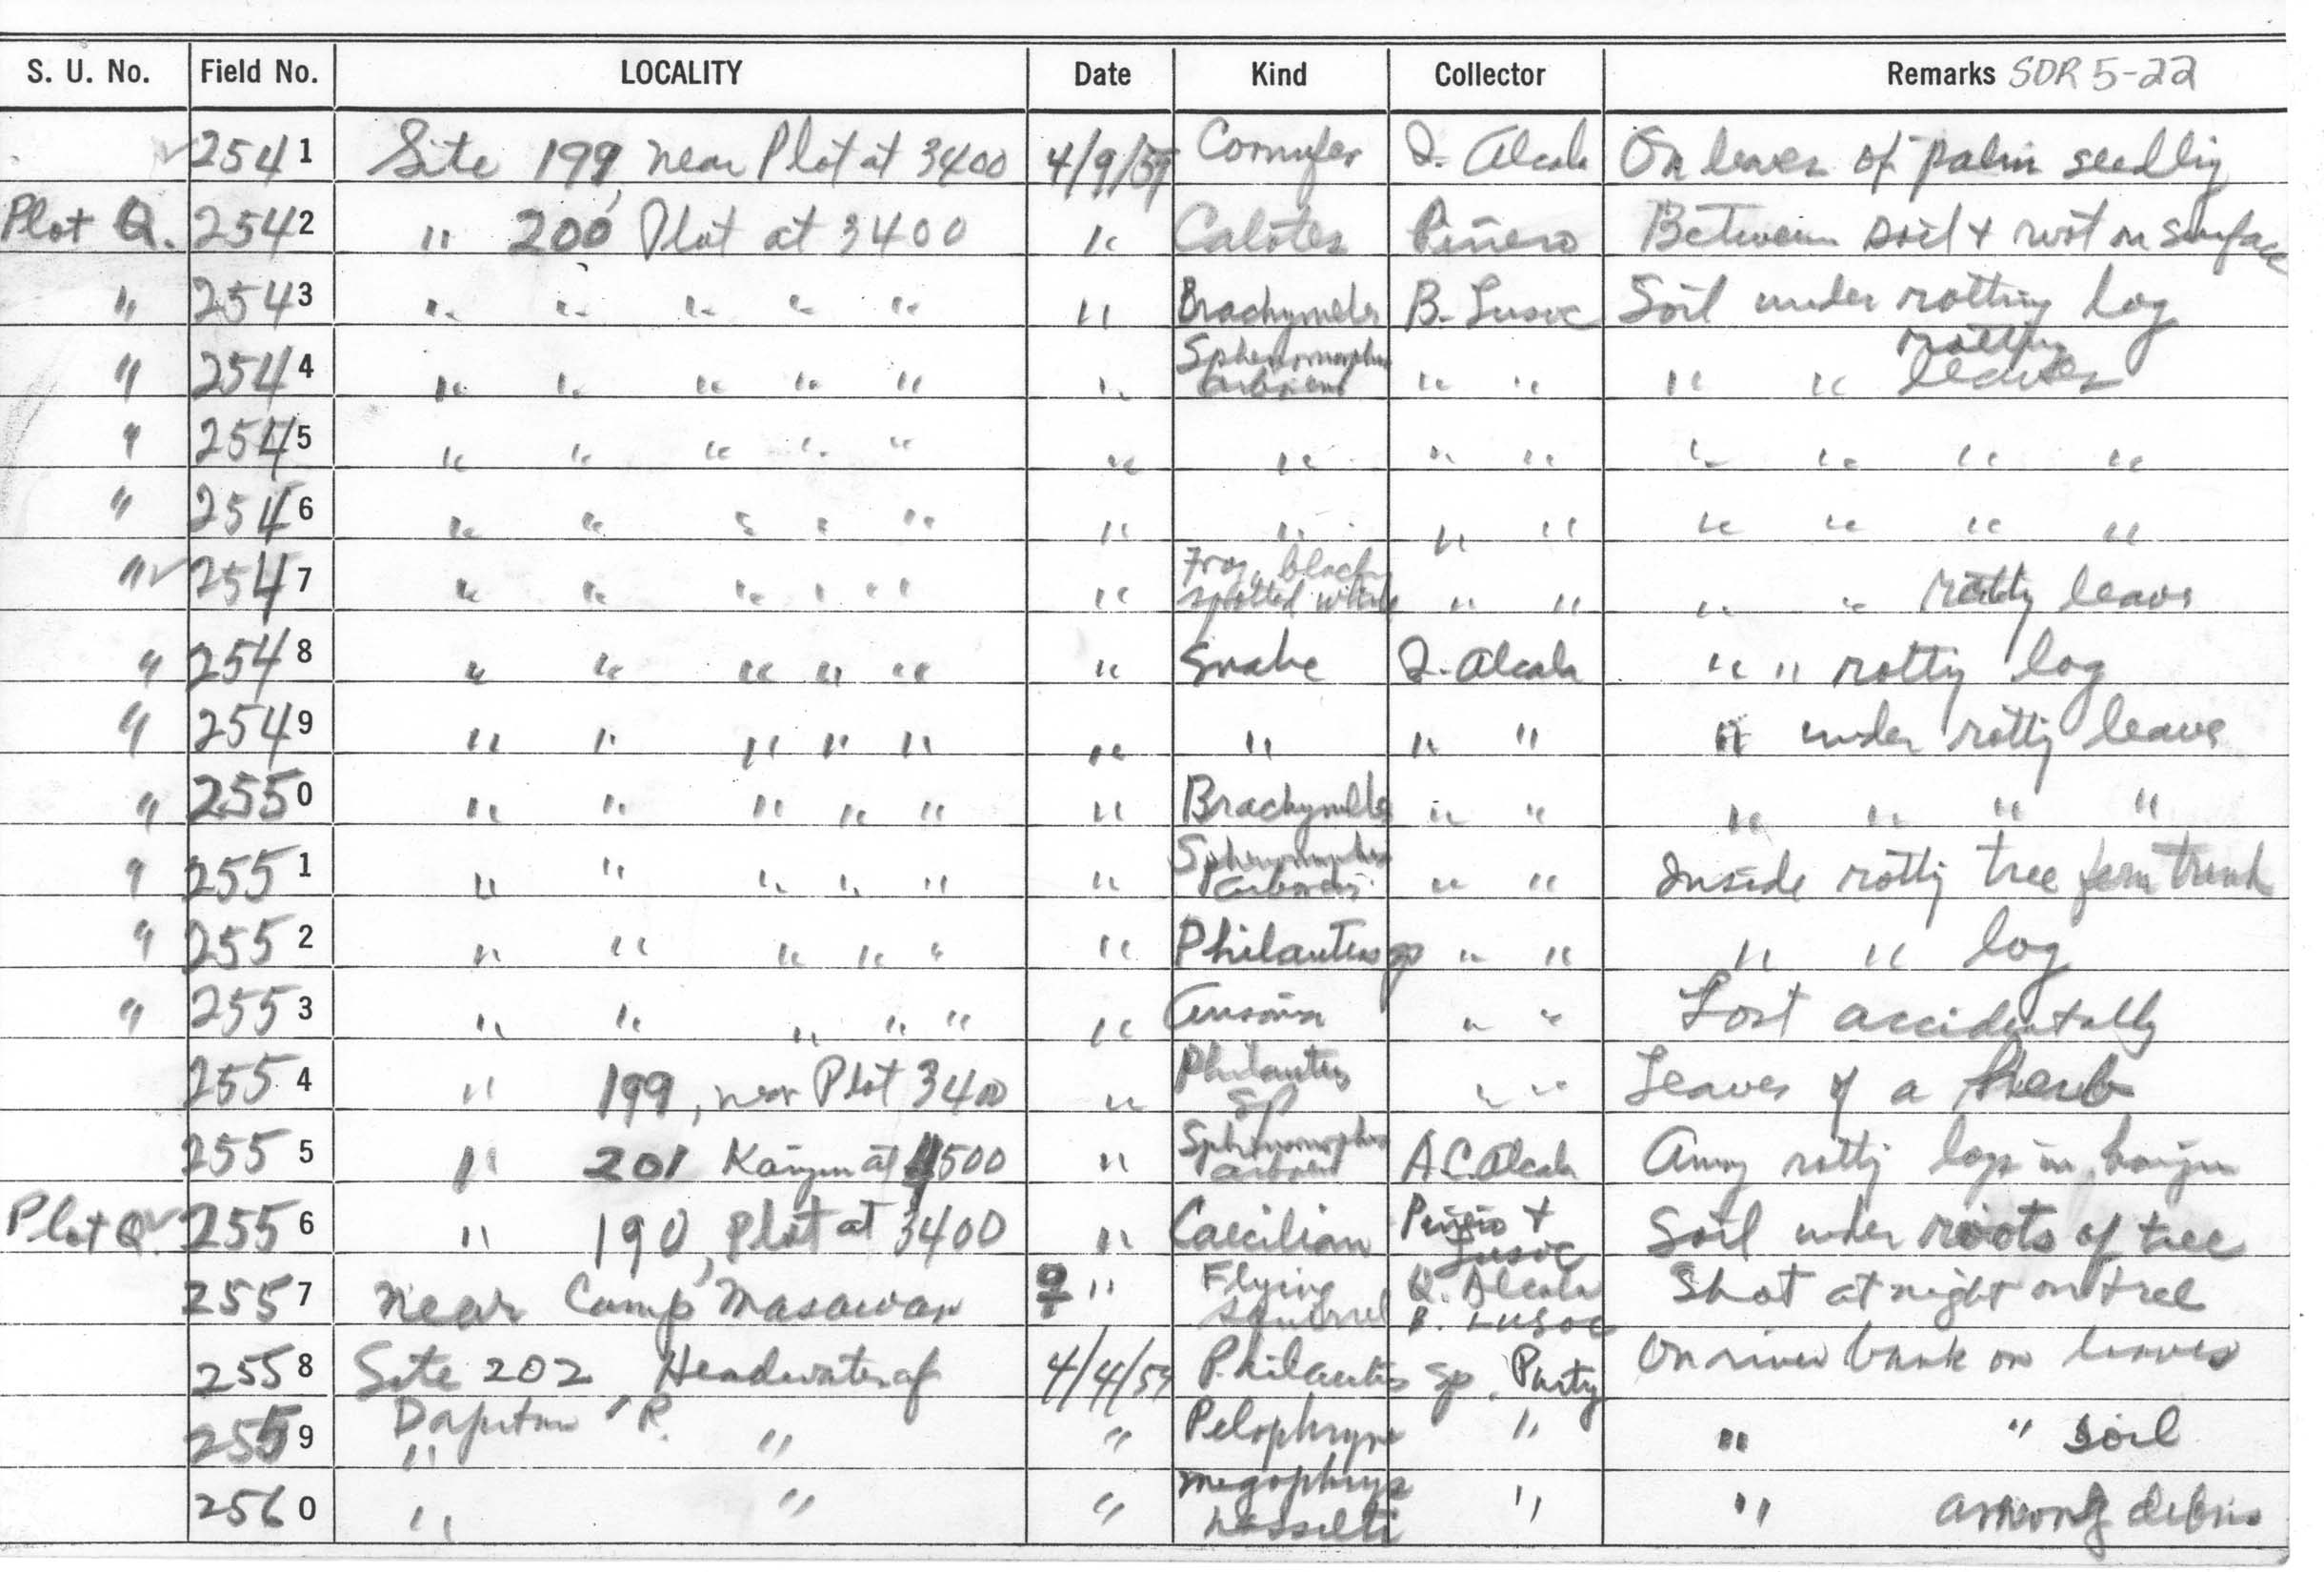 S. U. No. Field No. LOCALITY Date Kind Collector Remarks SDR 5-22
2541 Site 199, near Plot at 3400 4/9/59 Cornufer Q. Alcala On leaves of palm seedlig
Plot Q. 2542 " 200 Plot at 3400 " Calotes Piñero Between soil + root on surface
" 2543 " " " " " " Brachymeles B. Lusoc Soil under rotting log
" 2544 " " " " " " Sphenomorphus " " " " rotting leaves
2545 " " " " " " " " " " " " "
" 2546 " " " " " " " " " " " " "
" 2547 " " " " " " Frog, black spotted white " " " " rottig leave
" 2548 " " " " " " Snake Q. Alcala " " rottig log
" 2549 " " " " " " " " " " under rottig leave
" 2550 " " " " " " Brachymeles " " " " " "
" 2551 " " " " " " Sphenomorphus " " Inside rottig tree fern trunk
" 2552 " " " " " " Philautus sp " " " " log
" 2553 " " " " " " Ansonia " " Lost accidentally
2554 " 199, near Plot 3400 " Philautus sp " " Leaves of a herb
2555 " 201 Kaingin at 4500 " Sphenomorphus A.C. Alcala rottig logs in kaingin
Plot Q. 2556 " 190, Plot at 3400 " Caecilian Piñero + Lusoc Soil under roots of tree
2557 Near Camp Masawan ♀ " Flying squirrel Q. Alcala B. Lusoc Shot at night on tree
2558 Site 202 Headwater of 4/4/59 Philautus sp. Party On river bank on leaves
2559 Dapitan R. " " " Pelophryne " " " soil
2560 " " " Megophrys hasselti " " among debris